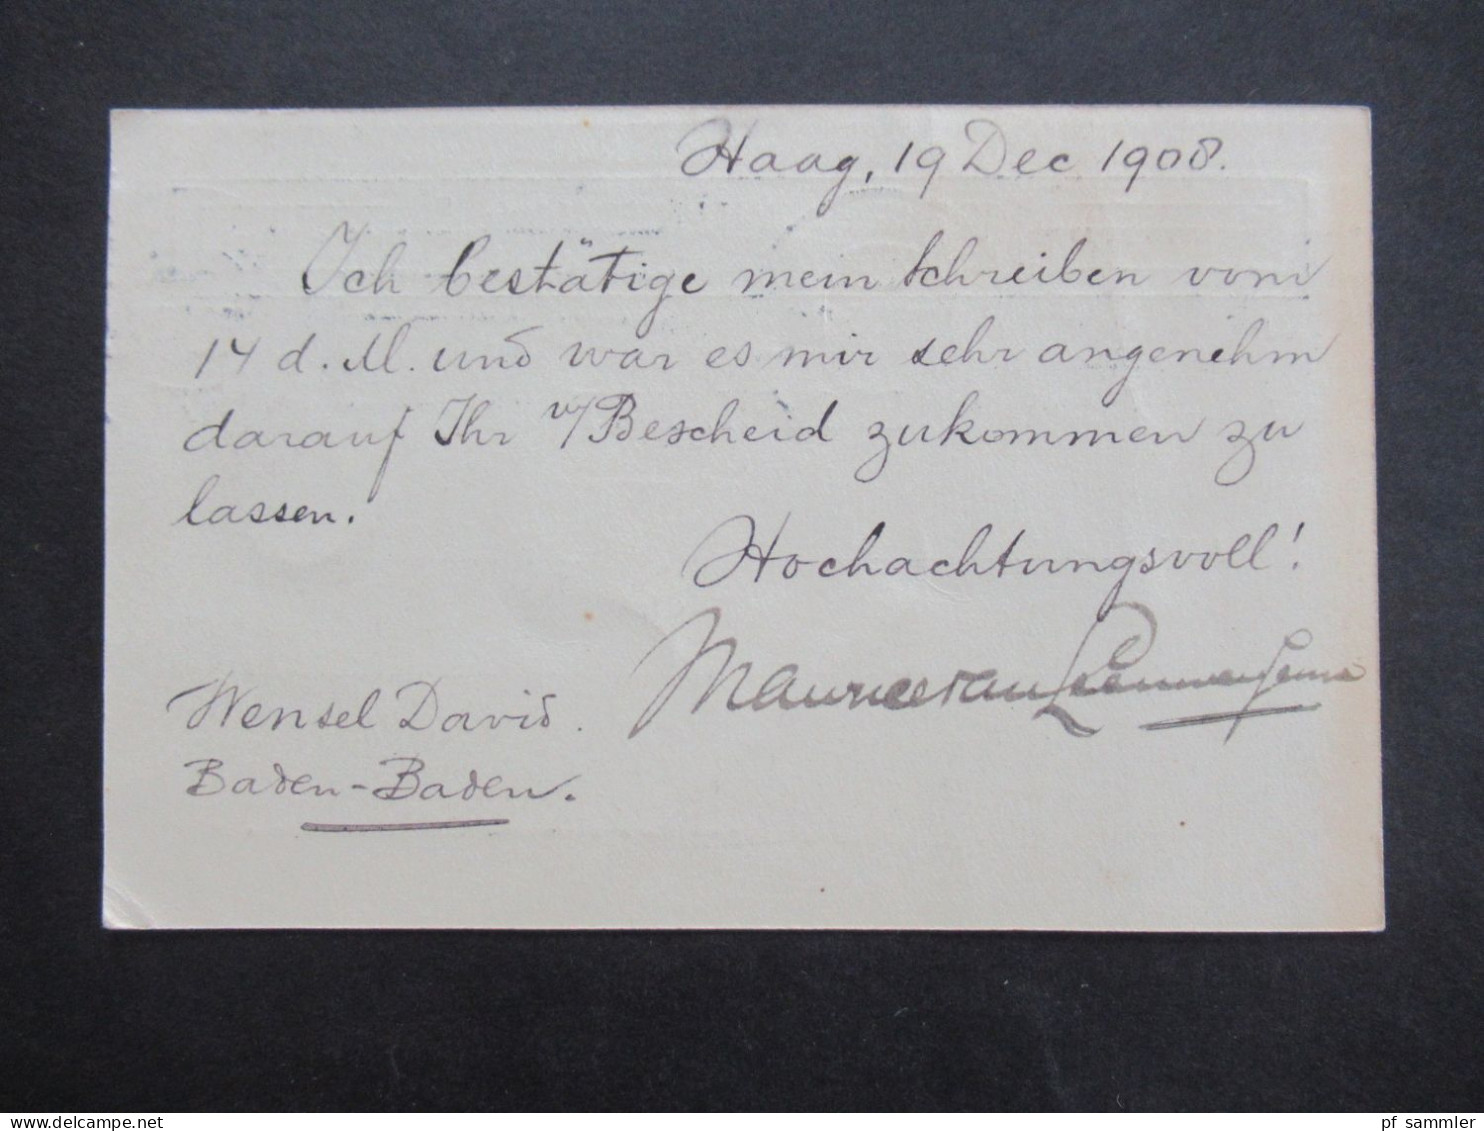 Haag, 19 Dec 1908.
Ich bestätige mein Schreiben vom
14 d. M. und war es mir sehr angenehm
darauf Ihr Bescheid zukommen zu
lassen.
Hochachtungsvoll!
Maurice van
Wensel David.
Baden-Baden.
www.delcampe.net
pf_sammler